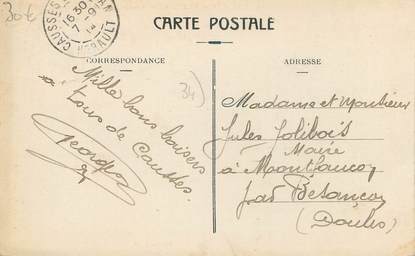 30€
CARTE POSTALE
CORRESPONDANCE
ADRESSE
CAUSSES
HERAULT
16 30
7 - 9
34)
Mille bons baisers
à tous de
Causses.
Georges
Madame et Monsieur
Jules Jolibois
Maire
à Montfaucon
par Besançon
(Doubs)